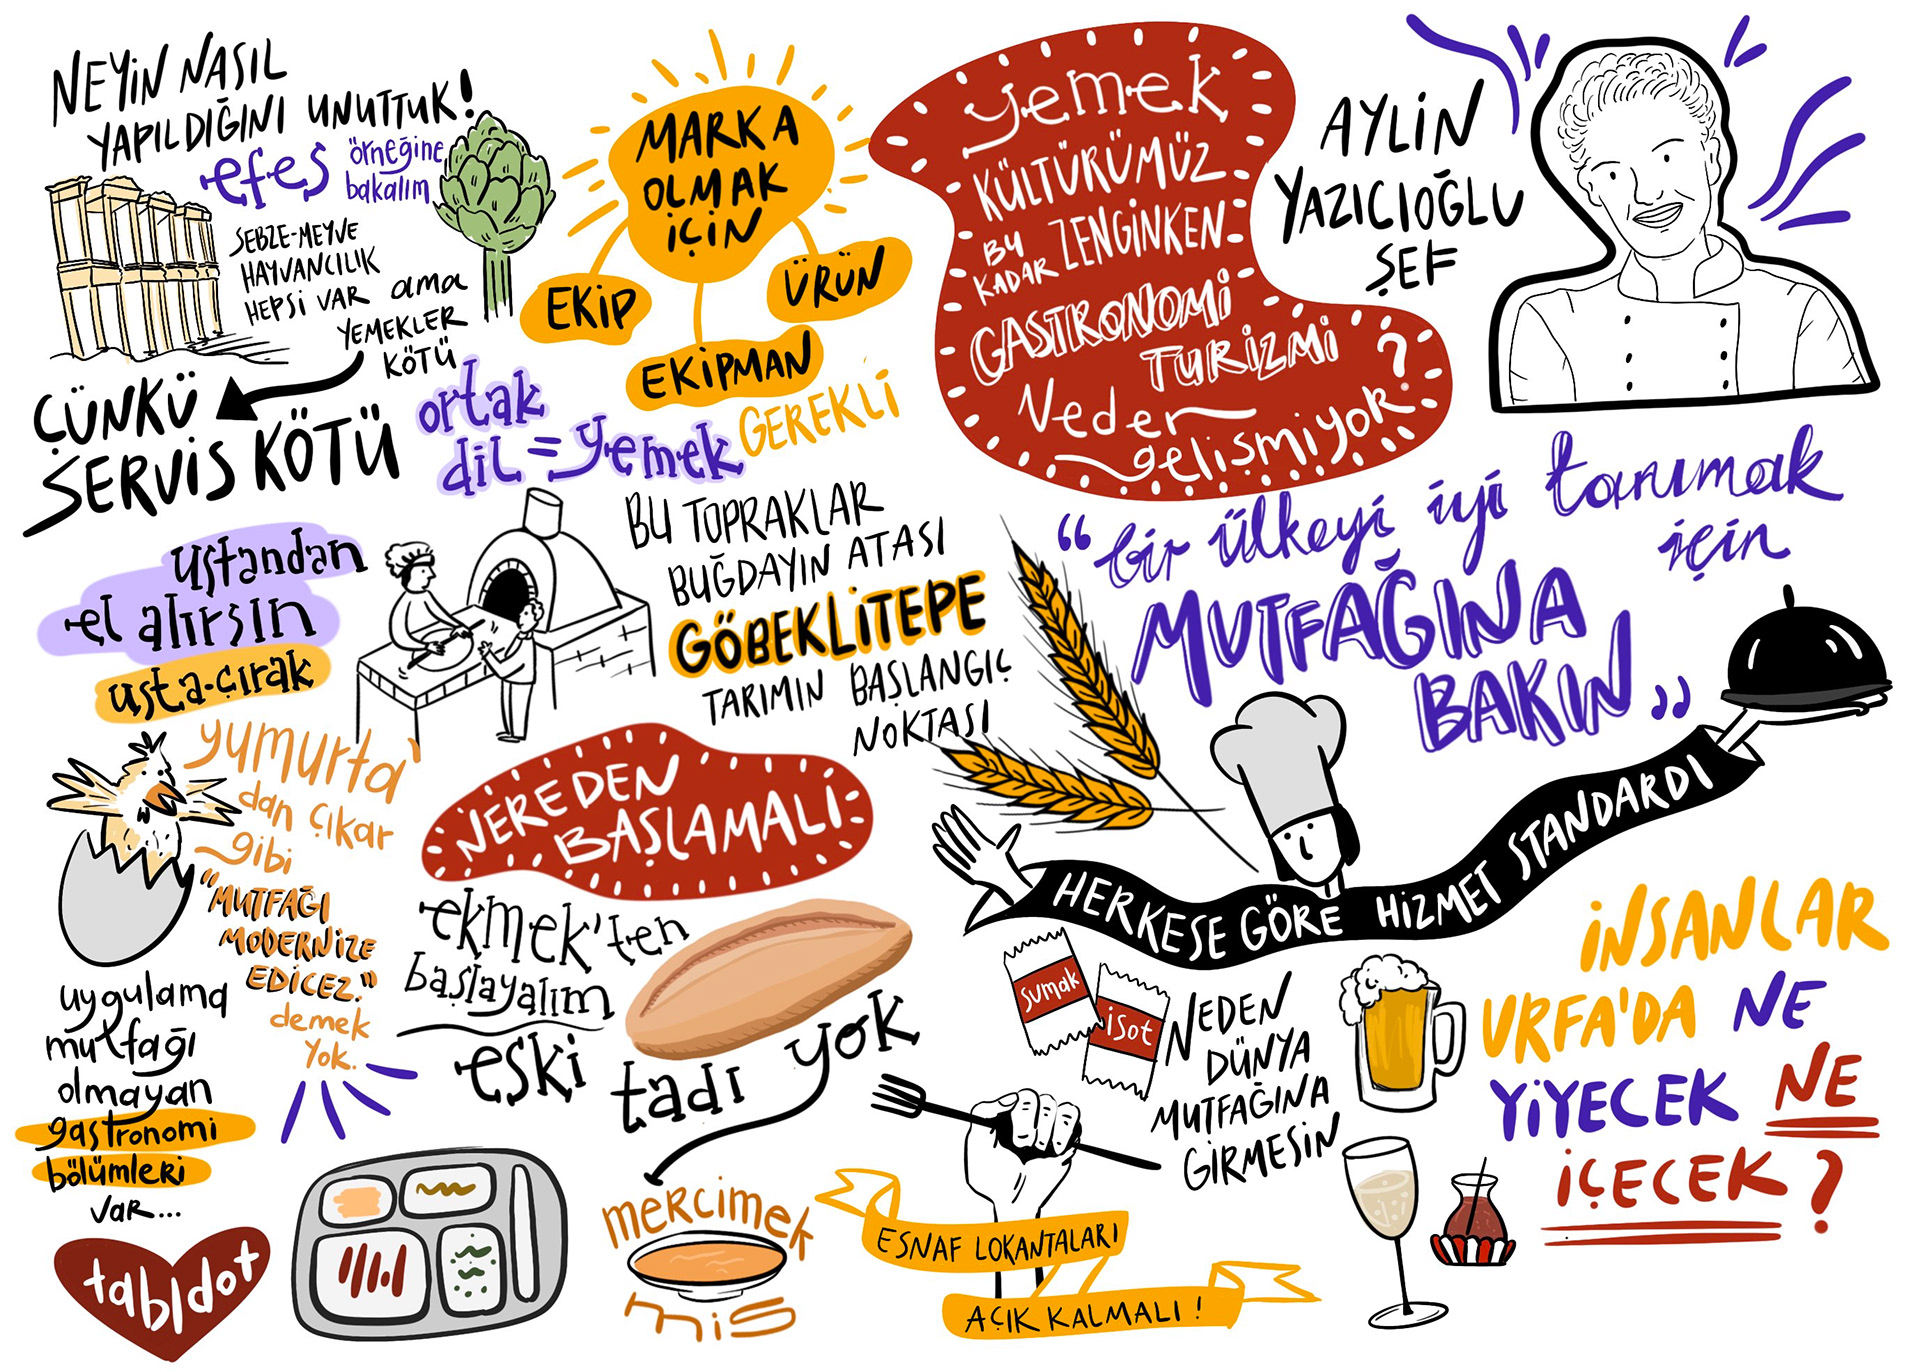 NEYİN NASIL
YAPILDIĞINI UNUTTUK!
efes örneğine
bakalım
SEBZE-MEYVE
HAYVANCILIK
HEPSİ VAR ama
YEMEKLER
KÖTÜ
ÇÜNKÜ
SERVİS KÖTÜ
MARKA
OLMAK
İÇİN
EKİP
EKİPMAN
ÜRÜN
GEREKLİ
ortak
dil = yemek
yemek
KÜLTÜRÜMÜZ
BU
KADAR ZENGİNKEN
GASTRONOMİ
TURİZMİ
Neden
gelişmiyor?
AYLİN
YAZICIOĞLU
ŞEF
ustandan
el alırsın
usta-çırak
BU TOPRAKLAR
BUĞDAYIN ATASI
GÖBEKLİTEPE
TARIMIN BAŞLANGIÇ
NOKTASI
“bir ülkeyi iyi tanımak
için
MUTFAĞINA
BAKIN„
yumurta'
dan çıkar
gibi
"MUTFAĞI
MODERNİZE
EDİCEZ."
demek
yok.
NEREDEN
BAŞLAMALI
ekmek'ten
başlayalım
eski
tadı yok
mercimek
mis
HERKESE GÖRE HİZMET STANDARDI
uygulama
mutfağı
olmayan
gastronomi
bölümleri
var...
tabldot
sumak
isot
NEDEN
DÜNYA
MUTFAĞINA
GİRMESİN
ESNAF LOKANTALARI
AÇIK KALMALI!
İNSANLAR
URFA'DA NE
YİYECEK NE
İÇECEK?